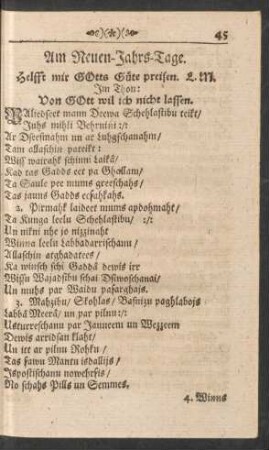 45
Am Neuen-Jahrs-Tage.
Helfft mir GOtts Güte preisen. L. M.
Im Thon:
Von GOtt wil ich nicht lassen.
PAlihdseet mann Deewa Schehlastibu teikt/
Juhs mihli Behrniņi :/:
Ar Dseesmahm un ar Luhgschanahm/
Tam allaschin pateikt:
Wiss wairahk schinni Laikâ/
Kad tas Gadds eet pa Ghallam/
Ta Saule pee mums greeschahs/
Tas jauns Gadds eesahkahs.
2. Pirmahk laideet mums apdohmaht/
Ta Kunga leelu Schehlastibu/ :/:
Un nikni nhe jo nizzinaht
Winna leelu Labbadarrischanu/
Allaschin atghadatees/
Ka winsch schi Gaddâ dewis irr
Wissu Wajadsibu schai Dsiwoschanai/
Un muhs par Waidu pasarghajs.
3. Mahzibu/ Skohlas/ Basnizu paghlabojs
Labbâ Meerâ/ un par pilnu :/:
Usturreschanu par Jauneem un Wezzeem
Dewis arridsan klaht/
Un itt ar pilnu Rohku/
Tas sawu Mantu isdallijs/
Ispostischanu nowehrsis/
No schahs Pills un Semmes.
4. Winns